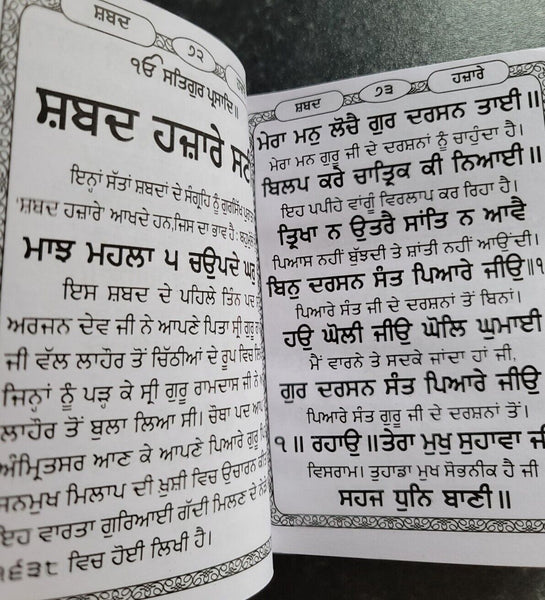 ਸ਼ਬਦ
੭੨
੧ਓ ਸਤਿਗੁਰ ਪ੍ਰਸਾਦਿ॥
ਸ਼ਬਦ ਹਜ਼ਾਰੇ
ਇਨ੍ਹਾਂ ਸੱਤਾਂ ਸ਼ਬਦਾਂ ਦੇ ਸੰਗ੍ਰਹਿ ਨੂੰ ਗੁਰਸਿੱਖ
'ਸ਼ਬਦ ਹਜ਼ਾਰੇ' ਆਖਦੇ ਹਨ,ਜਿਸ ਦਾ ਭਾਵ ਹੈ:
ਮਾਝ ਮਹਲਾ ੫ ਚਉਪਦੇ ਘਰੁ
ਇਸ ਸ਼ਬਦ ਦੇ ਪਹਿਲੇ ਤਿੰਨ ਪਦ
ਅਰਜਨ ਦੇਵ ਜੀ ਨੇ ਆਪਣੇ ਪਿਤਾ ਸ੍ਰੀ ਗੁਰੂ
ਜੀ ਵੱਲ ਲਾਹੌਰ ਤੋਂ ਚਿੱਠੀਆਂ ਦੇ ਰੂਪ ਵਿਚ
ਜਿਨ੍ਹਾਂ ਨੂੰ ਪੜ੍ਹ ਕੇ ਸ੍ਰੀ ਗੁਰੂ ਰਾਮਦਾਸ ਜੀ ਨੇ
ਲਾਹੌਰ ਤੋਂ ਬੁਲਾ ਲਿਆ ਸੀ। ਚੌਥਾ ਪਦ ਆਪ
ਅੰਮ੍ਰਿਤਸਰ ਆਣ ਕੇ ਆਪਣੇ ਪਿਆਰੇ ਗੁਰੂ
ਸਨਮੁਖ ਮਿਲਾਪ ਦੀ ਖੁਸ਼ੀ ਵਿਚ ਉਚਾਰਨ
ਇਹ ਵਾਰਤਾ ਗੁਰਿਆਈ ਗੱਦੀ ਮਿਲਣ ਦੇ
੧੬੩੮ ਵਿਚ ਹੋਈ ਲਿਖੀ ਹੈ।
ਸ਼ਬਦ
੭੩
ਹਜ਼ਾਰੇ
ਮੇਰਾ ਮਨੁ ਲੋਚੈ ਗੁਰ ਦਰਸਨ ਤਾਈ॥
ਮੇਰਾ ਮਨ ਗੁਰੂ ਜੀ ਦੇ ਦਰਸ਼ਨਾਂ ਨੂੰ ਚਾਹੁੰਦਾ ਹੈ।
ਬਿਲਪ ਕਰੇ ਚਾਤ੍ਰਿਕ ਕੀ ਨਿਆਈ॥
ਇਹ ਪਪੀਹੇ ਵਾਂਗੂੰ ਵਿਰਲਾਪ ਕਰ ਰਿਹਾ ਹੈ।
ਤ੍ਰਿਖਾ ਨ ਉਤਰੈ ਸਾਂਤਿ ਨ ਆਵੈ
ਪਿਆਸ ਨਹੀਂ ਬੁੱਝਦੀ ਤੇ ਸ਼ਾਂਤੀ ਨਹੀਂ ਆਉਂਦੀ।
ਬਿਨੁ ਦਰਸਨ ਸੰਤ ਪਿਆਰੇ ਜੀਉ॥੧
ਪਿਆਰੇ ਸੰਤ ਜੀ ਦੇ ਦਰਸ਼ਨਾਂ ਤੋਂ ਬਿਨਾਂ।
ਹਉ ਘੋਲੀ ਜੀਉ ਘੋਲਿ ਘੁਮਾਈ
ਮੈਂ ਵਾਰਨੇ ਤੇ ਸਦਕੇ ਜਾਂਦਾ ਹਾਂ ਜੀ,
ਗੁਰ ਦਰਸਨ ਸੰਤ ਪਿਆਰੇ ਜੀਉ
ਪਿਆਰੇ ਸੰਤ ਗੁਰੂ ਜੀ ਦੇ ਦਰਸ਼ਨਾਂ ਤੋਂ।
੧॥ ਰਹਾਉ ॥ਤੇਰਾ ਮੁਖੁ ਸੁਹਾਵਾ
ਵਿਸਰਾਮ। ਤੁਹਾਡਾ ਮੁਖ ਸੋਭਨੀਕ ਹੈ ਜੀ
ਸਹਜ ਧੁਨਿ ਬਾਣੀ॥